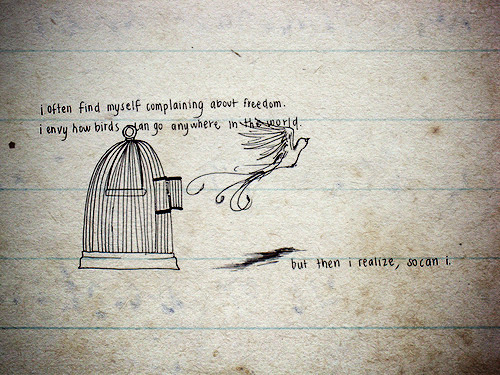 i often find myself complaining about freedom.
i envy how birds can go anywhere in the world.
but then i realize, so can i.